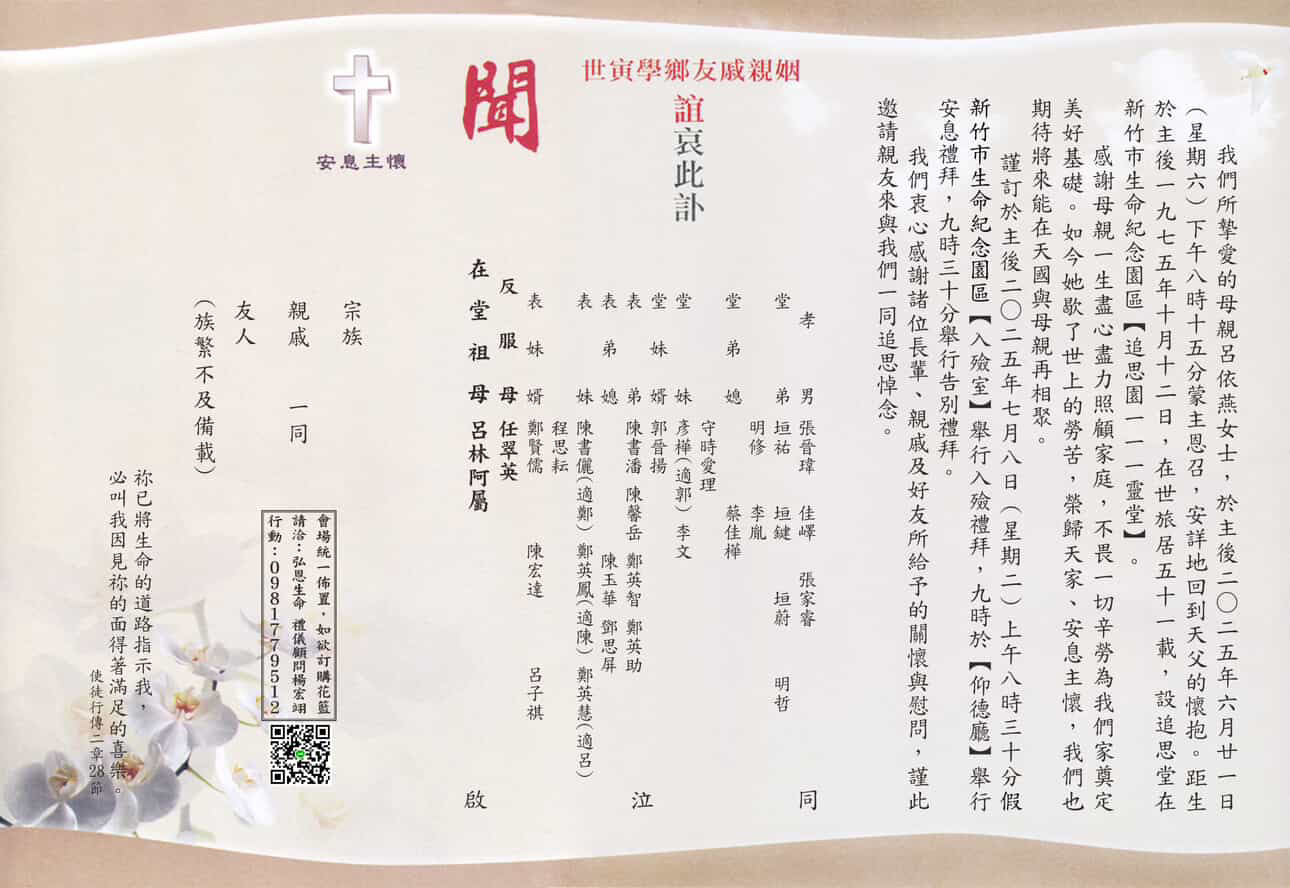 我們所摯愛的母親呂依燕女士，於主後二〇二五年六月廿一日
（星期六）下午八時十五分蒙主恩召，安詳地回到天父的懷抱。距生
於主後一九七五年十月十二日，在世旅居五十一載，設追思堂在
新竹市生命紀念園區【追思園一一一靈堂】。
感謝母親一生盡心盡力照顧家庭，不畏一切辛勞為我們家奠定
美好基礎。如今她歇了世上的勞苦，榮歸天家、安息主懷，我們也
期待將來能在天國與母親再相聚。
謹訂於主後二〇二五年七月八日（星期二）上午八時三十分假
新竹市生命紀念園區【入殮室】舉行入殮禮拜，九時於【仰德廳】舉行
安息禮拜，九時三十分舉行告別禮拜。
我們衷心感謝諸位長輩、親戚及好友所給予的關懷與慰問，謹此
邀請親友來與我們一同追思悼念。
世寅學鄉友戚親姻
誼哀此訃
聞
孝男 張晉瑋 佳嶧 張家睿 同
堂弟 垣祐 垣鍵 垣蔚 明哲
明修 李胤
堂弟媳 蔡佳樺
守時愛理
堂妹 彥樺（適郭） 李文
堂妹婿 郭晉揚
表弟 陳書潘 陳馨岳 鄭英智 鄭英助 泣
表弟媳 陳玉華 鄧思屏
表妹 陳書儷（適鄭） 鄭英鳳（適陳） 鄭英慧（適呂）
程思耘
表妹婿 鄭賢儒 陳宏達 呂子祺
反服母 任翠英
在堂祖母 呂林阿屬 啟
安息主懷
宗族
親戚 一同
友人
（族繁不及備載）
會場統一佈置，如欲訂購花籃
請洽：弘恩生命 禮儀顧問楊宏翊
行動：0981779512
祢已將生命的道路指示我，
必叫我因見祢的面得著滿足的喜樂。
使徒行傳二章28節